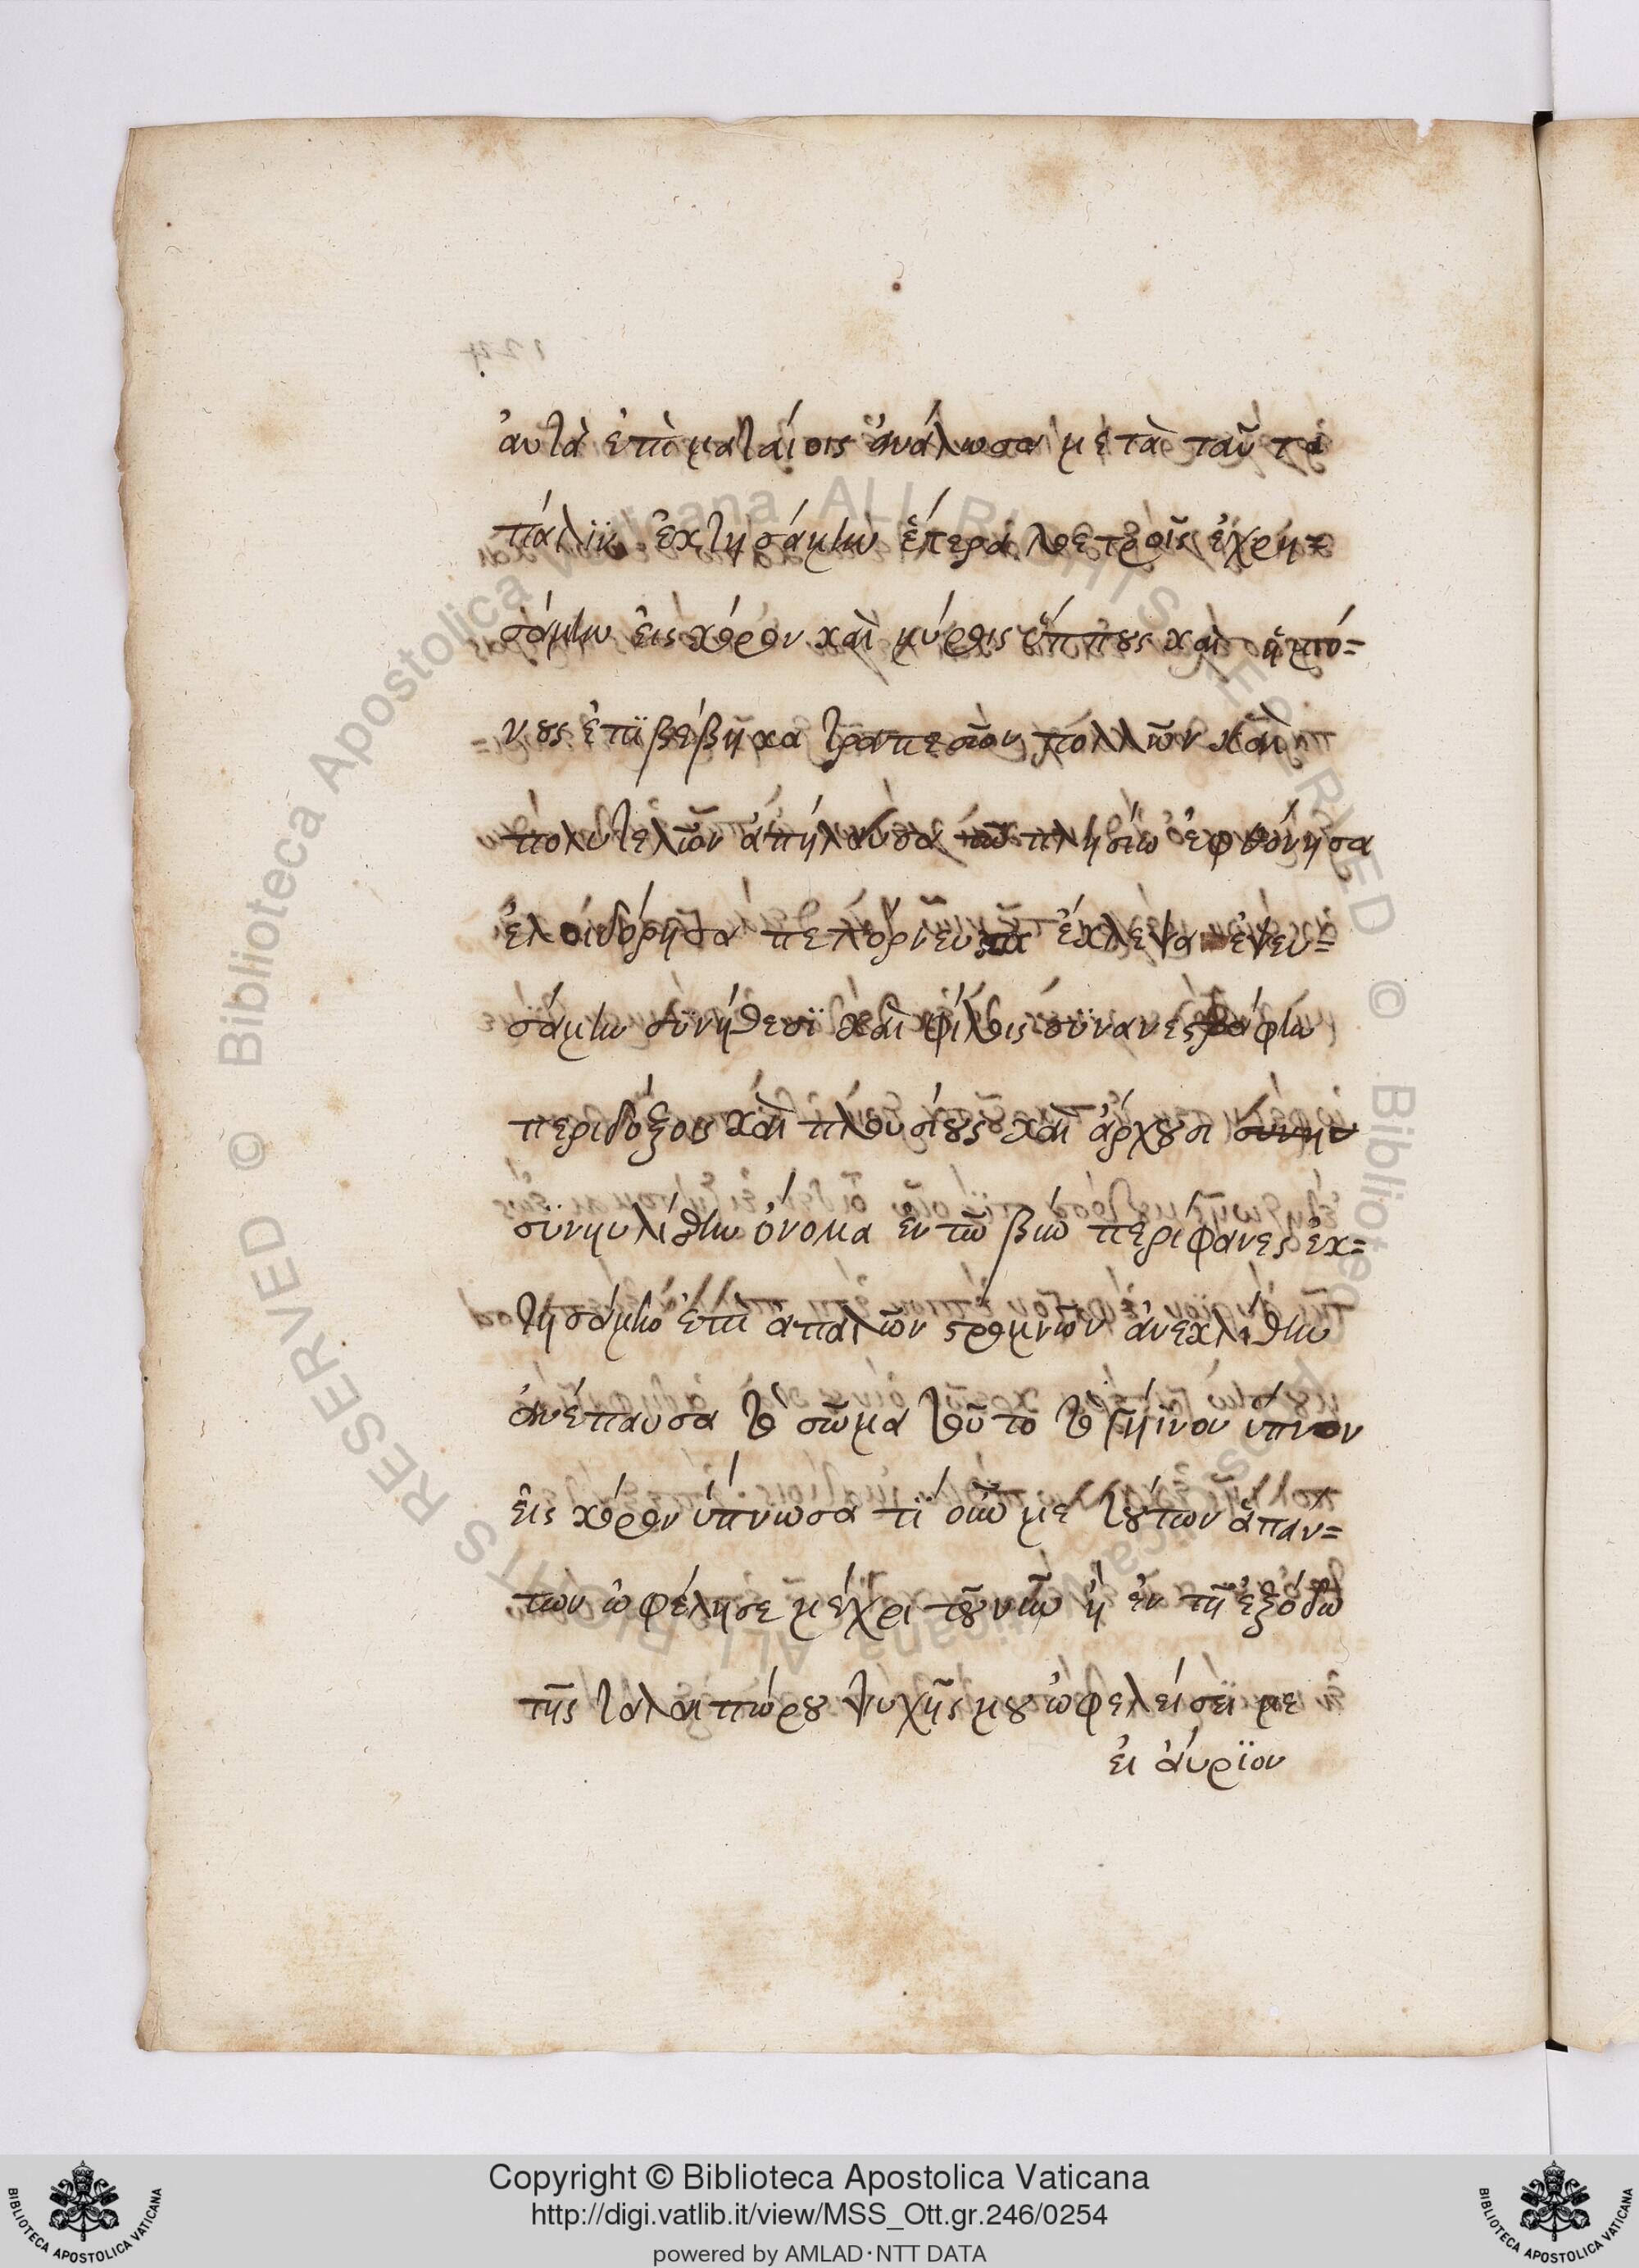 ἀυτὰ ἐπὶ ματαίοις ἀνάλωσα μετὰ ταῦτα
πάλϊν ἐκτησάμην ἕτερα λουετροῖς ἐχρη=
σάμην εἰς κόρον καὶ μύροις ἵππους καὶ ἡμιό=
νους ἐπϊβέβηκα τραπεσῶν πολλῶν καὶ
πολυτελῶν ἀπήλαυσα τῶ πλησίω ἐφθόνησα
ἐλοιδόρησα πεπόρνευκα ἔκλεψα εψευ=
σάμην σϋνήθεσϊ καὶ φίλοις σϋνανεστράφην
περιδόξοις καὶ πλουσίοις καὶ ἀρχουσι συνην
σϋνηυλίσθην ὄνομα ἐν τῶ βίω περιφανες ἐκ=
τησάμην ἐπὶ ἀπαλῶν στρωμνῶν ἀνεκλίθην
ἀνέπαυσα τὸ σῶμα τοῦτο τὸ γήϊνον ὕπνον
εἰς κόρον ὕπνωσα τϊ οὖν με τούτων ἁπάν=
των ὠφέλησε μέχρι τοῦ νῦν ἢ ἐν τῆ ἐξόδω
τῆς ταλαιπώρου ψυχῆς μου ὠφελείσεϊ με
ἐι ἀύρϊον
Copyright © Biblioteca Apostolica Vaticana
http://digi.vatlib.it/view/MSS_Ott.gr.246/0254
powered by AMLAD·NTT DATA
BIBLIOTECA APOSTOLICA VATICANA
BIBLIOTECA APOSTOLICA VATICANA